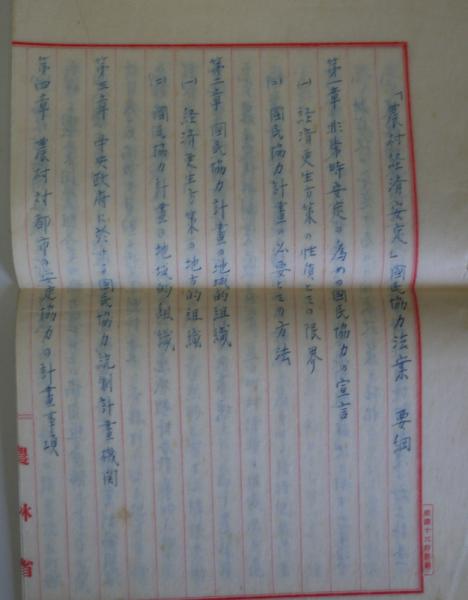 「農村経済安定」國民協力法案 要綱
第一章 非常時安定の為めの國民協力の宣言
(一) 経済更生方策の性質とその限界
(二) 國民協力計畫の必要とその方法
第二章 國民協力計畫の地域的組織
(一) 経済更生方策の地方的組織
(二) 國民協力計畫の地域的組織
第三章 中央政府に於ける國民協力統制計畫機関
第四章 農村対都市の安定協力の計畫事項
農林省